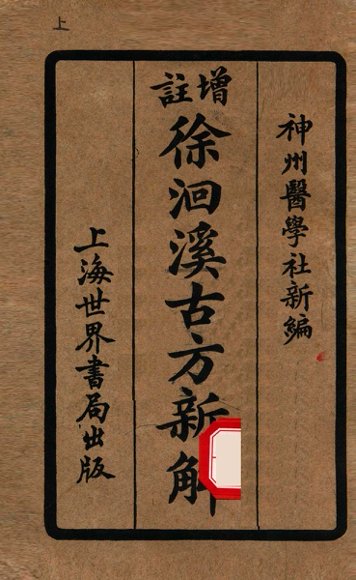 上
神州醫學社新編
增註
徐洄溪古方新解
上海世界書局出版